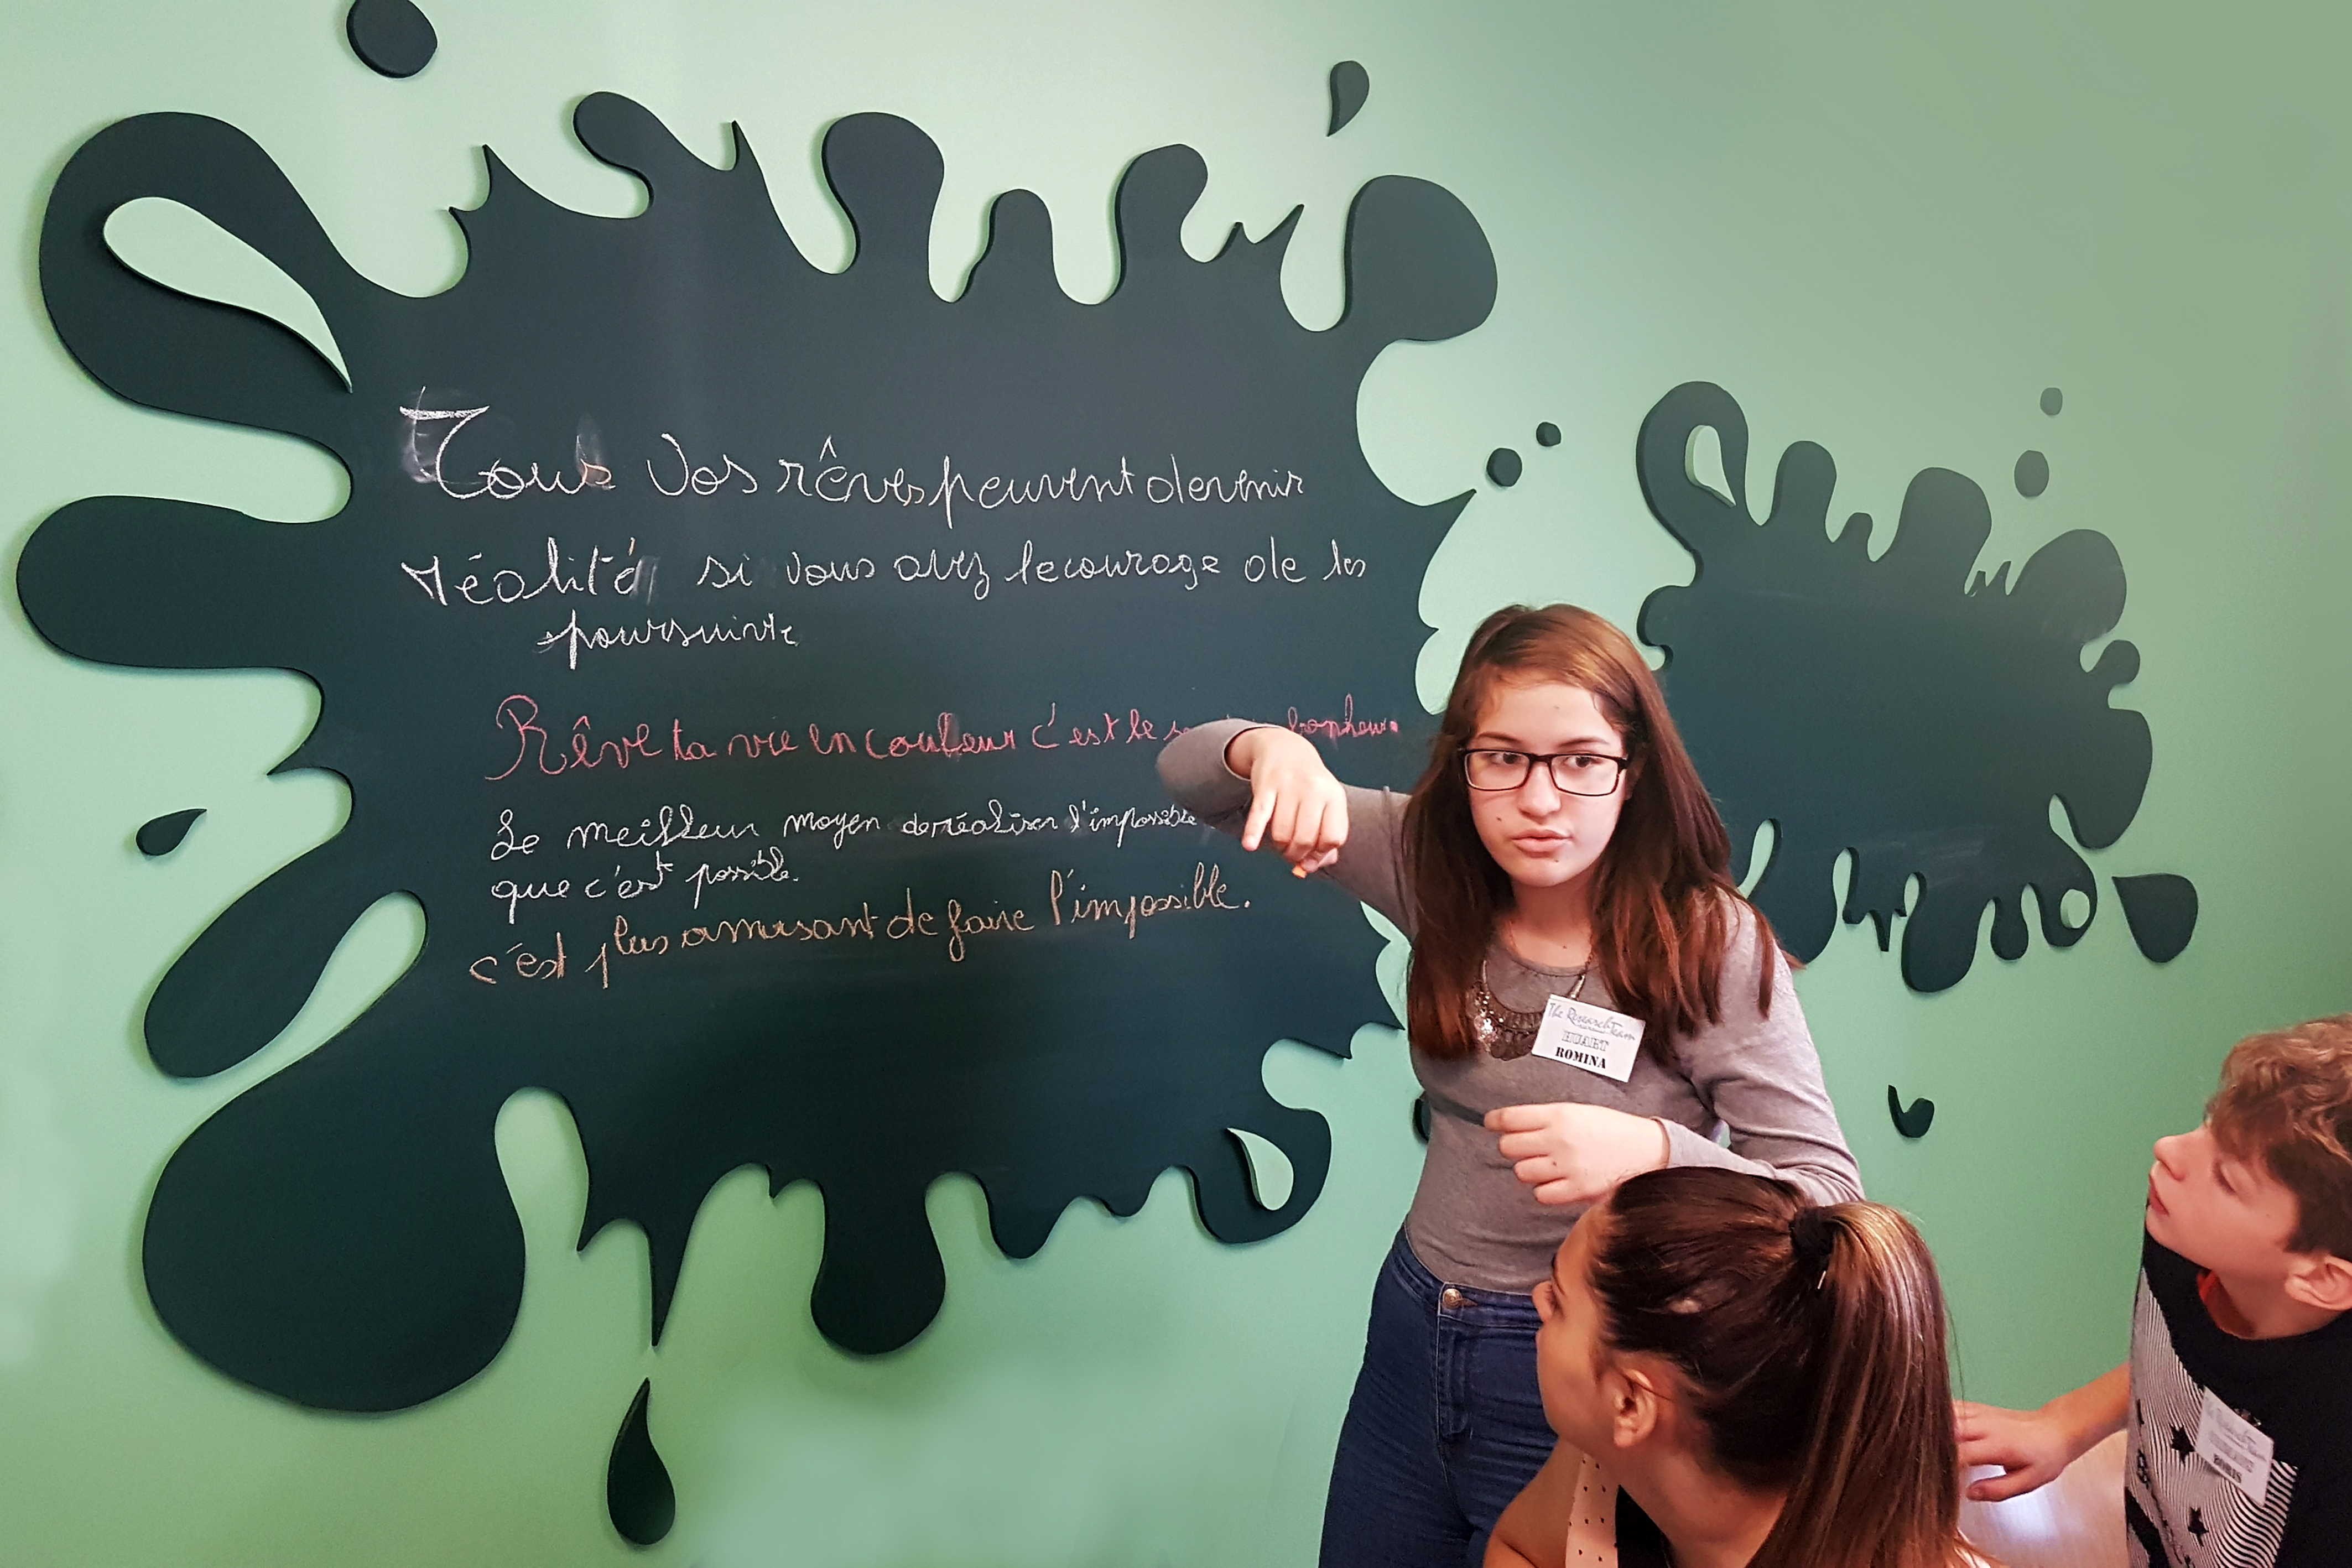 Tous vos rêves peuvent devenir
réalité si vous avez le courage de les
poursuivre
Rêve ta vie en couleur c'est le bonheur.
Le meilleur moyen de réaliser l'impossible
que c'est possible.
c'est plus amusant de faire l'impossible.
The Research Team
HUART
ROMINA
BORIS